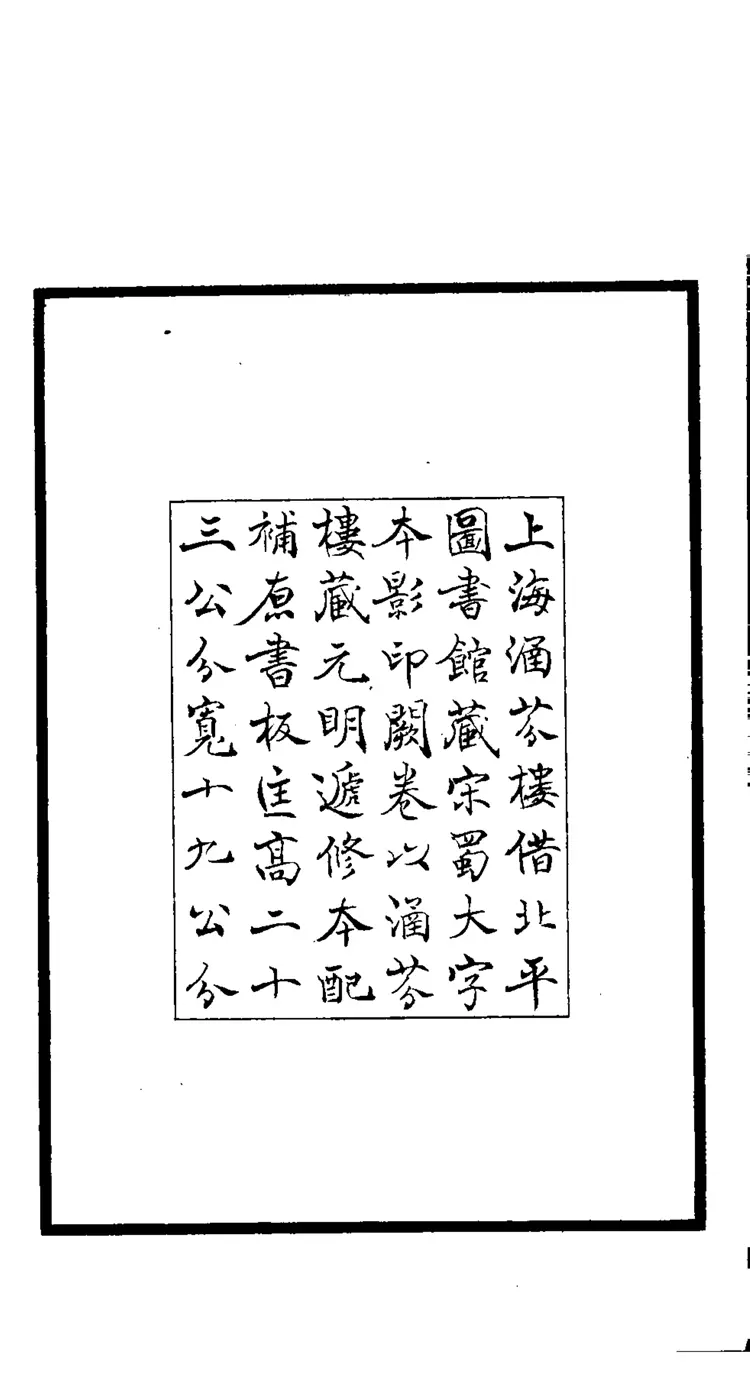 上海涵芬樓借北平
圖書館藏宋蜀大字
本影印闕卷以涵芬
樓藏元明遞修本配
補原書板匡高二十
三公分寬十九公分